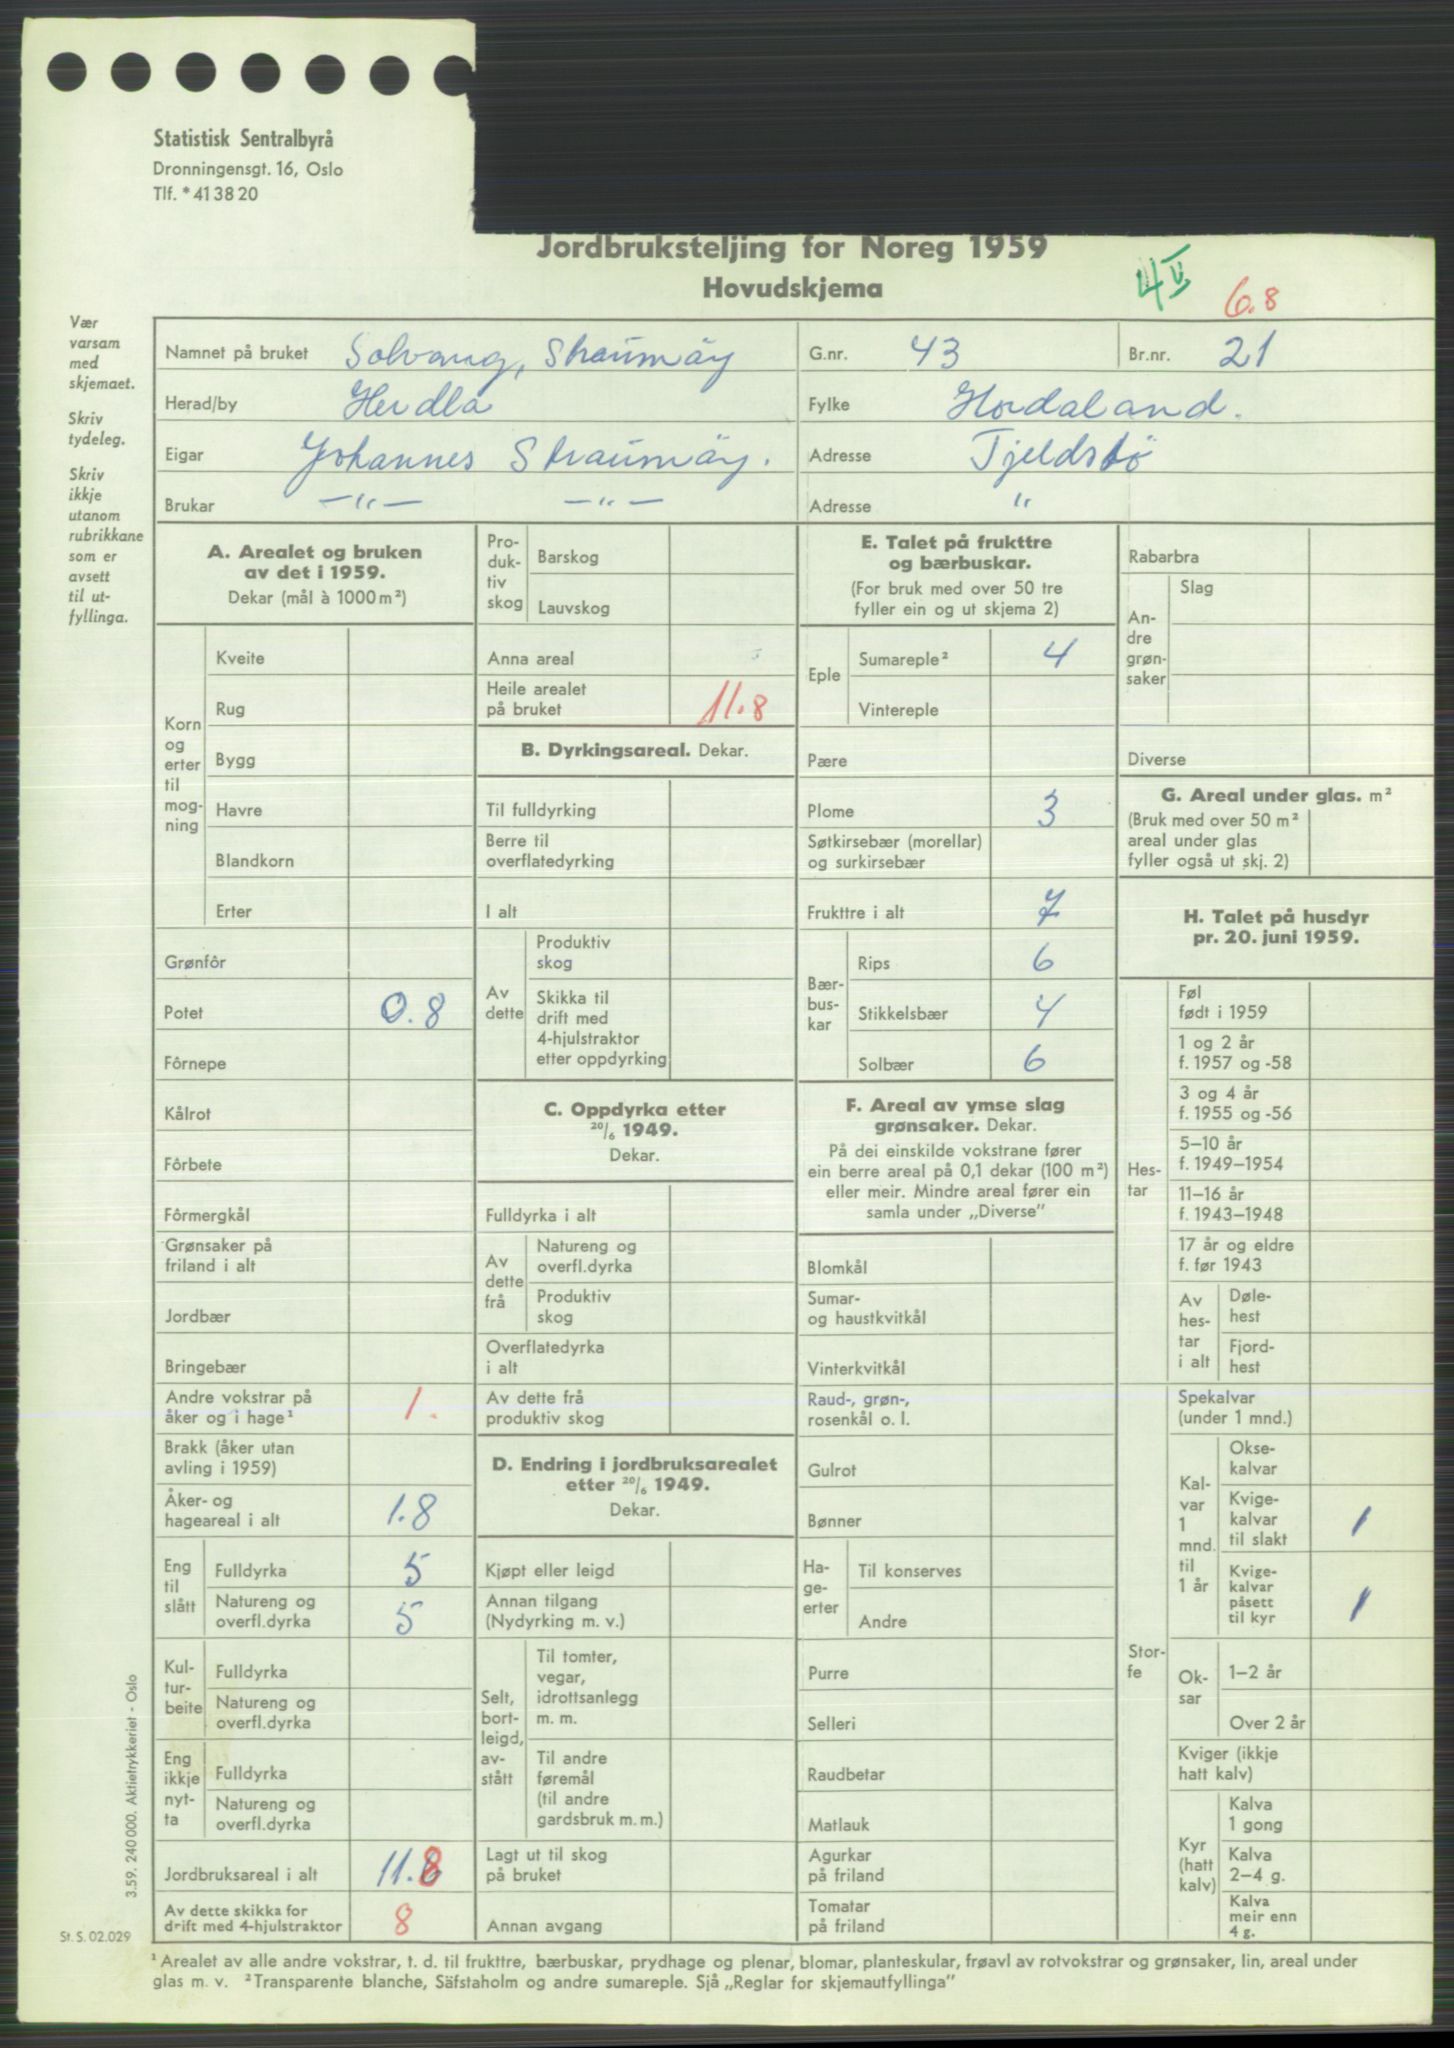 Statistisk Sentralbyrå
Dronningensgt. 16, Oslo
Tlf. * 41 38 20
Jordbruksteljing for Noreg 1959
Hovudskjema
4 V
6.8
Vær
varsam
med
skjemaet.
Skriv
tydeleg.
Skriv
ikkje
utanom
rubrikkane
som er
avsett
til ut-
fyllinga.
Namnet på bruket Solvang, Straumöy G.nr. 43 Br.nr. 21
Herad/by Herdla Fylke Hordaland.
Eigar Johannes Straumöy. Adresse Tjeldstö
Brukar —"— —"— Adresse "
A. Arealet og bruken
av det i 1959.
Dekar (mål à 1000 m²)
Korn
og
erter
til
mog-
ning
Kveite
Rug
Bygg
Havre
Blandkorn
Erter
Grønfôr
Potet 0.8
Fôrnepe
Kålrot
Fôrbete
Fôrmergkål
Grønsaker på
friland i alt
Jordbær
Bringebær
Andre vokstrar på
åker og i hage¹ 1.
Brakk (åker utan
avling i 1959)
Åker- og
hageareal i alt 1.8
Eng
til
slått
Fulldyrka 5
Natureng og
overfl.dyrka 5
Kul-
tur-
beite
Fulldyrka
Natureng og
overfl.dyrka
Eng
ikkje
nyt-
ta
Fulldyrka
Natureng og
overfl.dyrka
Jordbruksareal i alt 11.8
Av dette skikka for
drift med 4-hjulstraktor 8
Pro-
duk-
tiv
skog
Barskog
Lauvskog
Anna areal
Heile arealet
på bruket 11.8
B. Dyrkingsareal. Dekar.
Til fulldyrking
Berre til
overflatedyrking
I alt
Av
dette
Produktiv
skog
Skikka til
drift med
4-hjulstraktor
etter oppdyrking
C. Oppdyrka etter
20/6 1949.
Dekar.
Fulldyrka i alt
Av
dette
frå
Natureng og
overfl.dyrka
Produktiv
skog
Overflatedyrka
i alt
Av dette frå
produktiv skog
D. Endring i jordbruksarealet
etter 20/6 1949.
Dekar.
Kjøpt eller leigd
Annan tilgang
(Nydyrking m. v.)
Selt,
bort-
leigd,
av-
stått
Til tomter,
vegar,
idrottsanlegg
m. m.
Til andre
føremål
(til andre
gardsbruk m. m.)
Lagt ut til skog
på bruket
Annan avgang
E. Talet på frukttre
og bærbuskar.
(For bruk med over 50 tre
fyller ein og ut skjema 2)
Eple
Sumareple² 4
Vintereple
Pære
Plome 3
Søtkirsebær (morellar)
og surkirsebær
Frukttre i alt 7
Bær-
bus-
kar
Rips 6
Stikkelsbær 4
Solbær 6
F. Areal av ymse slag
grønsaker. Dekar.
På dei einskilde vokstrane fører
ein berre areal på 0,1 dekar (100 m²)
eller meir. Mindre areal fører ein
samla under „Diverse"
Blomkål
Sumar-
og haustkvitkål
Vinterkvitkål
Raud-, grøn-,
rosenkål o. l.
Gulrot
Bønner
Ha-
ge-
erter
Til konserves
Andre
Purre
Selleri
Raudbetar
Matlauk
Agurkar
på friland
Tomatar
på friland
Rabarbra
An-
dre
grøn-
saker
Slag
Diverse
G. Areal under glas. m²
(Bruk med over 50 m²
areal under glas
fyller også ut skj. 2)
H. Talet på husdyr
pr. 20. juni 1959.
Hes-
tar
Føl
født i 1959
1 og 2 år
f. 1957 og -58
3 og 4 år
f. 1955 og -56
5–10 år
f. 1949–1954
11–16 år
f. 1943–1948
17 år og eldre
f. før 1943
Av
hes-
tar
i alt
Døle-
hest
Fjord-
hest
Stor-
fe
Spekalvar
(under 1 mnd.)
Kal-
var
1
mnd.
til
1 år
Okse-
kalvar
Kvige-
kalvar
til slakt 1
Kvige-
kalvar
påsett
til kyr 1
Ok-
sar
1–2 år
Over 2 år
Kviger (ikkje
hatt kalv)
Kyr
(hatt
kalv)
Kalva
1 gong
Kalva
2–4 g.
Kalva
meir enn
4 g.
3.59. 240 000. Aktietrykkeriet - Oslo
St. S. 02.029
¹ Arealet av alle andre vokstrar, t. d. til frukttre, bærbuskar, prydhage og plenar, blomar, planteskular, frøavl av rotvokstrar og grønsaker, lin, areal under
glas m. v. ² Transparente blanche, Säfstaholm og andre sumareple. Sjå „Reglar for skjemautfyllinga"